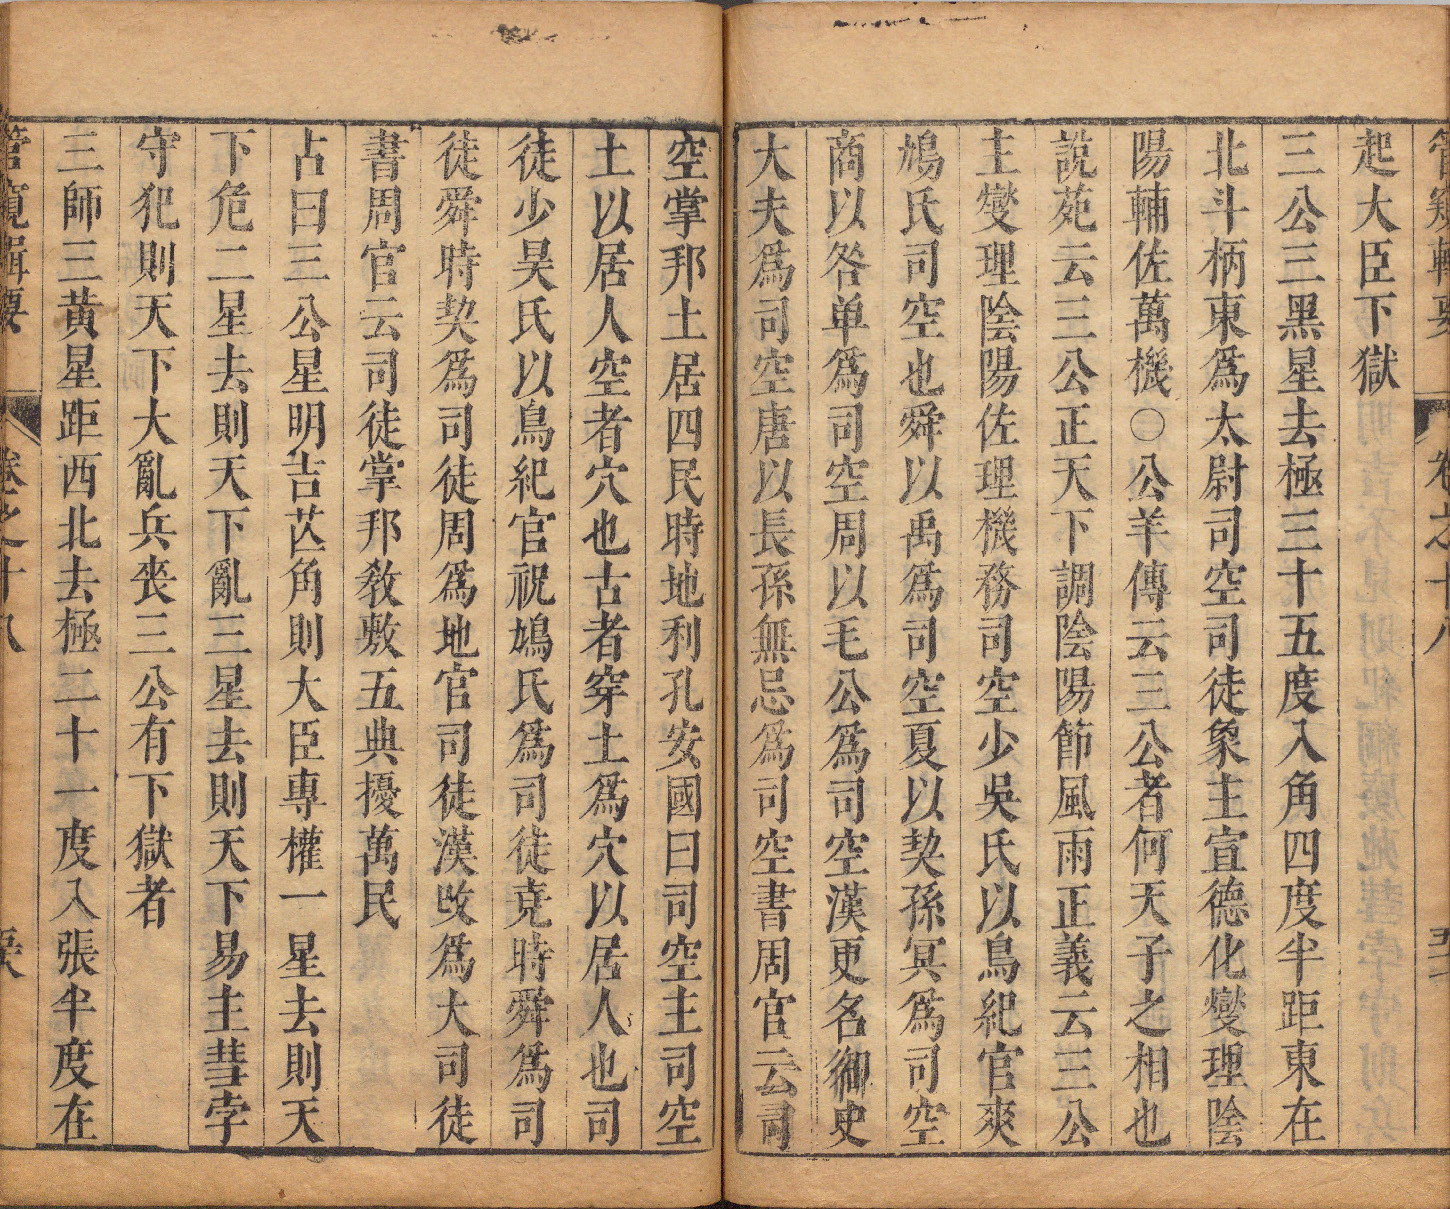 管窺輯要 卷之十八
起大臣下獄
三公三黑星去極三十五度入角四度半距東在
北斗柄東為太尉司空司徒象主宣德化燮理陰
陽輔佐萬機○公羊傳云三公者何天子之相也
說苑云三公正天下調陰陽節風雨正義云三公
主燮理陰陽佐理機務司空少吳氏以鳥紀官爽
鳩氏司空也舜以禹為司空夏以契孫冥為司空
商以咎单為司空周以毛公為司空漢更名御史
大夫為司空唐以長孫無忌為司空書周官云司
空掌邦土居四民時地利孔安國曰司空主司空
土以居人空者穴也古者穿土為穴以居人也司
徒少昊氏以鳥紀官祝鳩氏為司徒堯時舜為司
徒舜時契為司徒周為地官司徒漢改為大司徒
書周官云司徒掌邦敎敷五典擾萬民
占曰三公星明吉芒角則大臣專權一星去則天
下危二星去則天下亂三星去則天下易主彗孛
守犯則天下大亂兵喪三公有下獄者
三師三黄星距西北去極二十一度入張半度在
管窺輯要 卷之十八